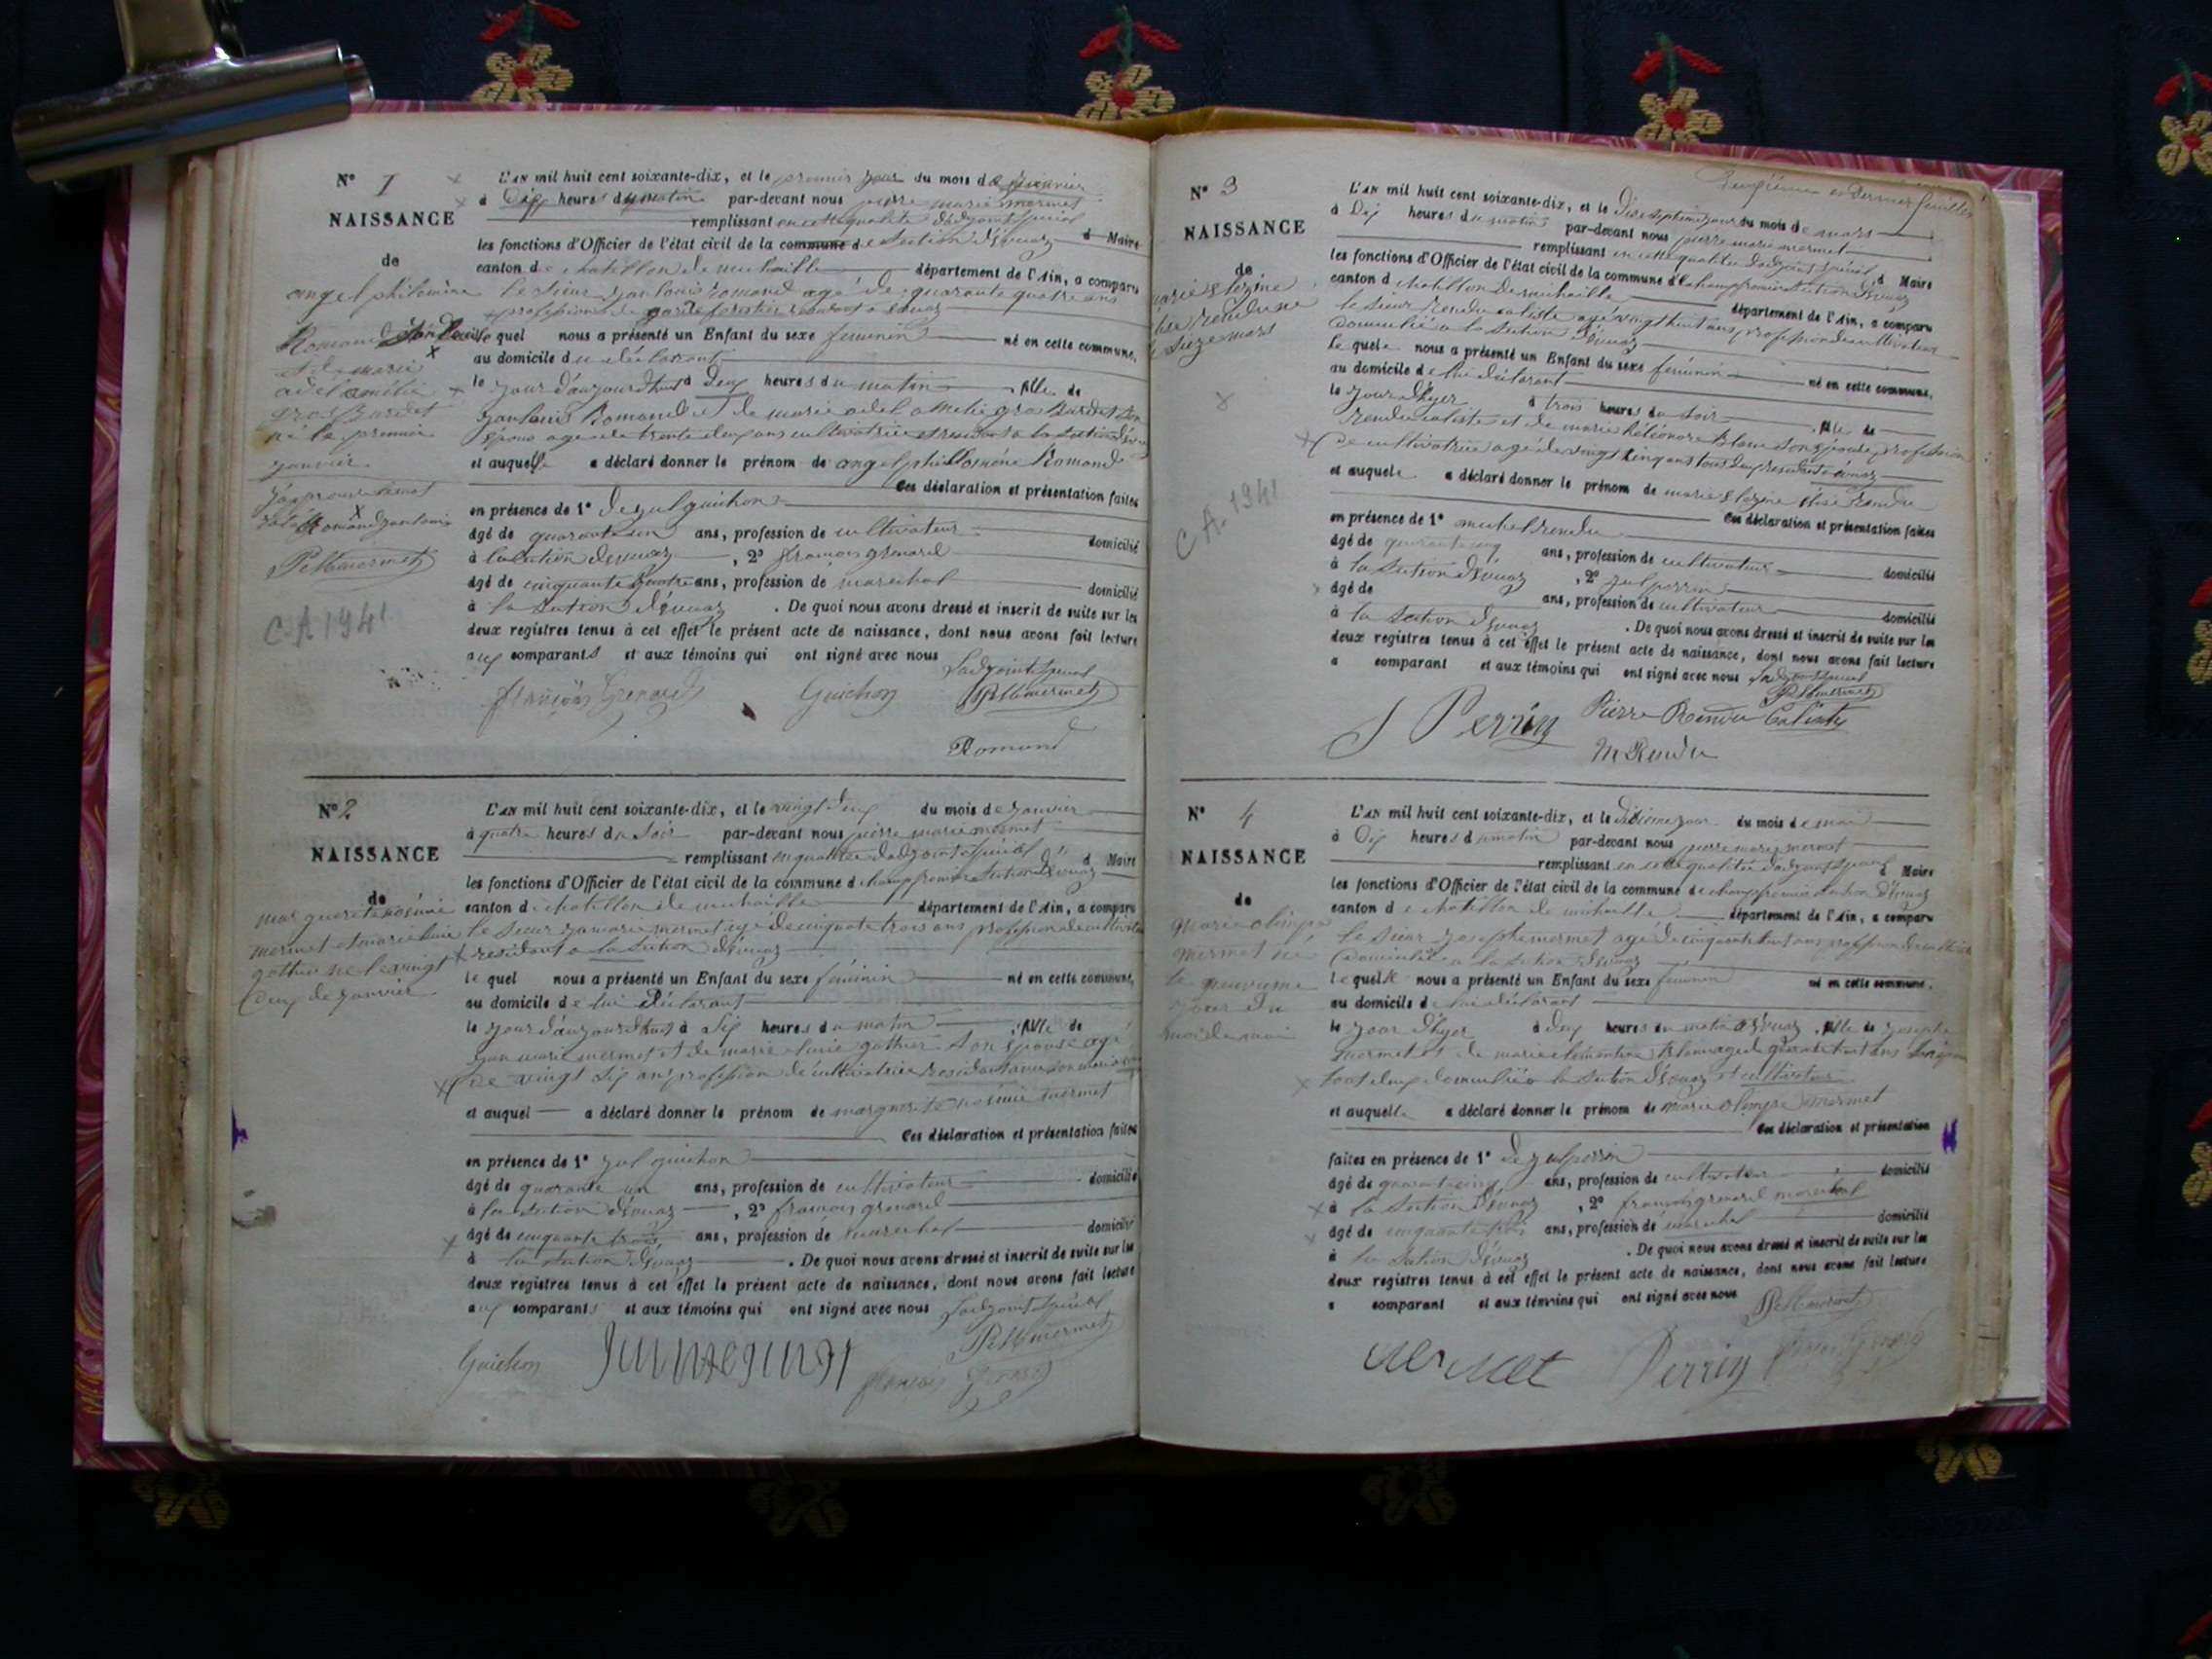 N° 1
NAISSANCE
de
angel philomène
Romand
et de marie
adel amélie
gros Burdet
né le premier
janvier
Romand jean louis
P M mermet
C.A 1941
L'AN mil huit cent soixante-dix, et le premier jour du mois de janvier
à Dix heures du matin par-devant nous pierre marie mermet
remplissant en cette qualité d'adjoint spécial
les fonctions d'Officier de l'état civil de la commune de section d'évuaz d Maire
canton de chatillon de michaille département de l'Ain, a comparu
le sieur jan louis romand agé de quarante quatre ans
profession de garde forestier résidant a évuaz
le quel nous a présenté un Enfant du sexe féminin né en cette commune,
au domicile du déclarant
le jour d'aujourdhui à Deux heures du matin fille de
jan louis Romand et de marie adel amélie gros Burdet son
épouse agée de trente deux ans cultivatrice et résidant a la section d'évuaz
et auquelle a déclaré donner le prénom de angel philomène Romand
Ces déclaration et présentation faites
en présence de 1° de jul guichon
âgé de quarante un ans, profession de cultivateur domicilié
à la section d'évuaz , 2° françois grenard
âgé de cinquante quatre ans, profession de maréchal domicilié
à la section d'évuaz . De quoi nous avons dressé et inscrit de suite sur les
deux registres tenus à cet effet le présent acte de naissance, dont nous avons fait lecture
aux comparants et aux témoins qui ont signé avec nous L'adjoint spécial
françois Grenard Guichon P M mermet
Romand
N° 2
NAISSANCE
de
marguerite
mermet et marie lucie
gothier né le vingt
deux de janvier
L'AN mil huit cent soixante-dix, et le vingt deux du mois de janvier
à quatre heures du soir par-devant nous pierre marie mermet
remplissant en qualité d'adjoint spécial
les fonctions d'Officier de l'état civil de la commune de champfromier section d'évuaz d Maire
canton de chatillon de michaille département de l'Ain, a comparu
le sieur jan marie mermet agé de cinquante trois ans profession de cultivateur
résidant a la section d'évuaz
le quel nous a présenté un Enfant du sexe féminin né en cette commune,
au domicile de lui Déclarant
le jour d'aujourdhui à Six heures du matin fille de
jan marie mermet et de marie lucie gothier son épouse agé
de vingt six ans profession de cultivatrice résidant avec son mari
et auquel a déclaré donner le prénom de marguerite mermet
Ces déclaration et présentation faites
en présence de 1° jul guichon
âgé de quarante un ans, profession de cultivateur domicilié
à la section d'évuaz , 2° françois grenard
âgé de cinquante trois ans, profession de maréchal domicilié
à la section d'évuaz . De quoi nous avons dressé et inscrit de suite sur les
deux registres tenus à cet effet le présent acte de naissance, dont nous avons fait lecture
aux comparants et aux témoins qui ont signé avec nous L'adjoint spécial
P M mermet
Guichon
Deuxième et Dernier feuillet
N° 3
NAISSANCE
de
C A. 1941
L'AN mil huit cent soixante-dix, et le Dix septième jour du mois de mars
à Dix heures du matin par-devant nous pierre marie mermet
remplissant en cette qualité d'adjoint spécial
les fonctions d'Officier de l'état civil de la commune de champfromier section d'évuaz d Maire
canton d chatillon de michaille département de l'Ain, a comparu
le sieur Rendu caliste agé vingt huit ans profession de cultivateur
domicilié a la section d'évuaz
le quel nous a présenté un Enfant du sexe féminin né en cette commune,
au domicile de lui déclarant
le jour d'hyer à trois heures du soir fille de
Rendu caliste et de marie Blanc son épouse profession
de cultivatrice agé de vingt cinq ans tous deux résidant a évuaz
et auquelle a déclaré donner le prénom de marie Elise Rendu
Ces déclaration et présentation faites
en présence de 1° michel rendu
âgé de quarante cinq ans, profession de cultivateur domicilié
à la section d'évuaz , 2° jul perrin
âgé de ans, profession de cultivateur domicilié
à la section d'évuaz . De quoi nous avons dressé et inscrit de suite sur les
deux registres tenus à cet effet le présent acte de naissance, dont nous avons fait lecture
a comparant et aux témoins qui ont signé avec nous L'adjoint spécial
P M mermet
J Perrin Pierre Rendu Caliste
M Rendu
N° 4
NAISSANCE
de
Marie olimpe
mermet né
le neuvième
jour du
mois de mai
L'AN mil huit cent soixante-dix, et le Dixième jour du mois de mai
à Dix heures du matin par-devant nous pierre marie mermet
remplissant en cette qualité d'adjoint spécial d Maire
les fonctions d'Officier de l'état civil de la commune de champfromier section d'évuaz
canton de chatillon de michaille département de l'Ain, a comparu
le sieur joseph mermet agé de cinquante huit ans profession de cultivateur
domicilié a la section d'évuaz
le quel nous a présenté un Enfant du sexe féminin né en cette commune,
au domicile de lui déclarant
le jour d'hyer à deux heures du matin a évuaz fille de joseph
mermet et de marie clémentine Blanc agé de quarante huit ans
tout deux domicilié a la section d'évuaz et cultivateur
et auquelle a déclaré donner le prénom de Marie olimpe mermet
Ces déclaration et présentation
faites en présence de 1° de jul perrin
âgé de quarante cinq ans, profession de cultivateur domicilié
à la section d'évuaz , 2° françois grenard maréchal
âgé de cinquante trois ans, profession de maréchal domicilié
à la section d'évuaz . De quoi nous avons dressé et inscrit de suite sur les
deux registres tenus à cet effet le présent acte de naissance, dont nous avons fait lecture
a comparant et aux témoins qui ont signé avec nous
P M mermet
mermet Perrin